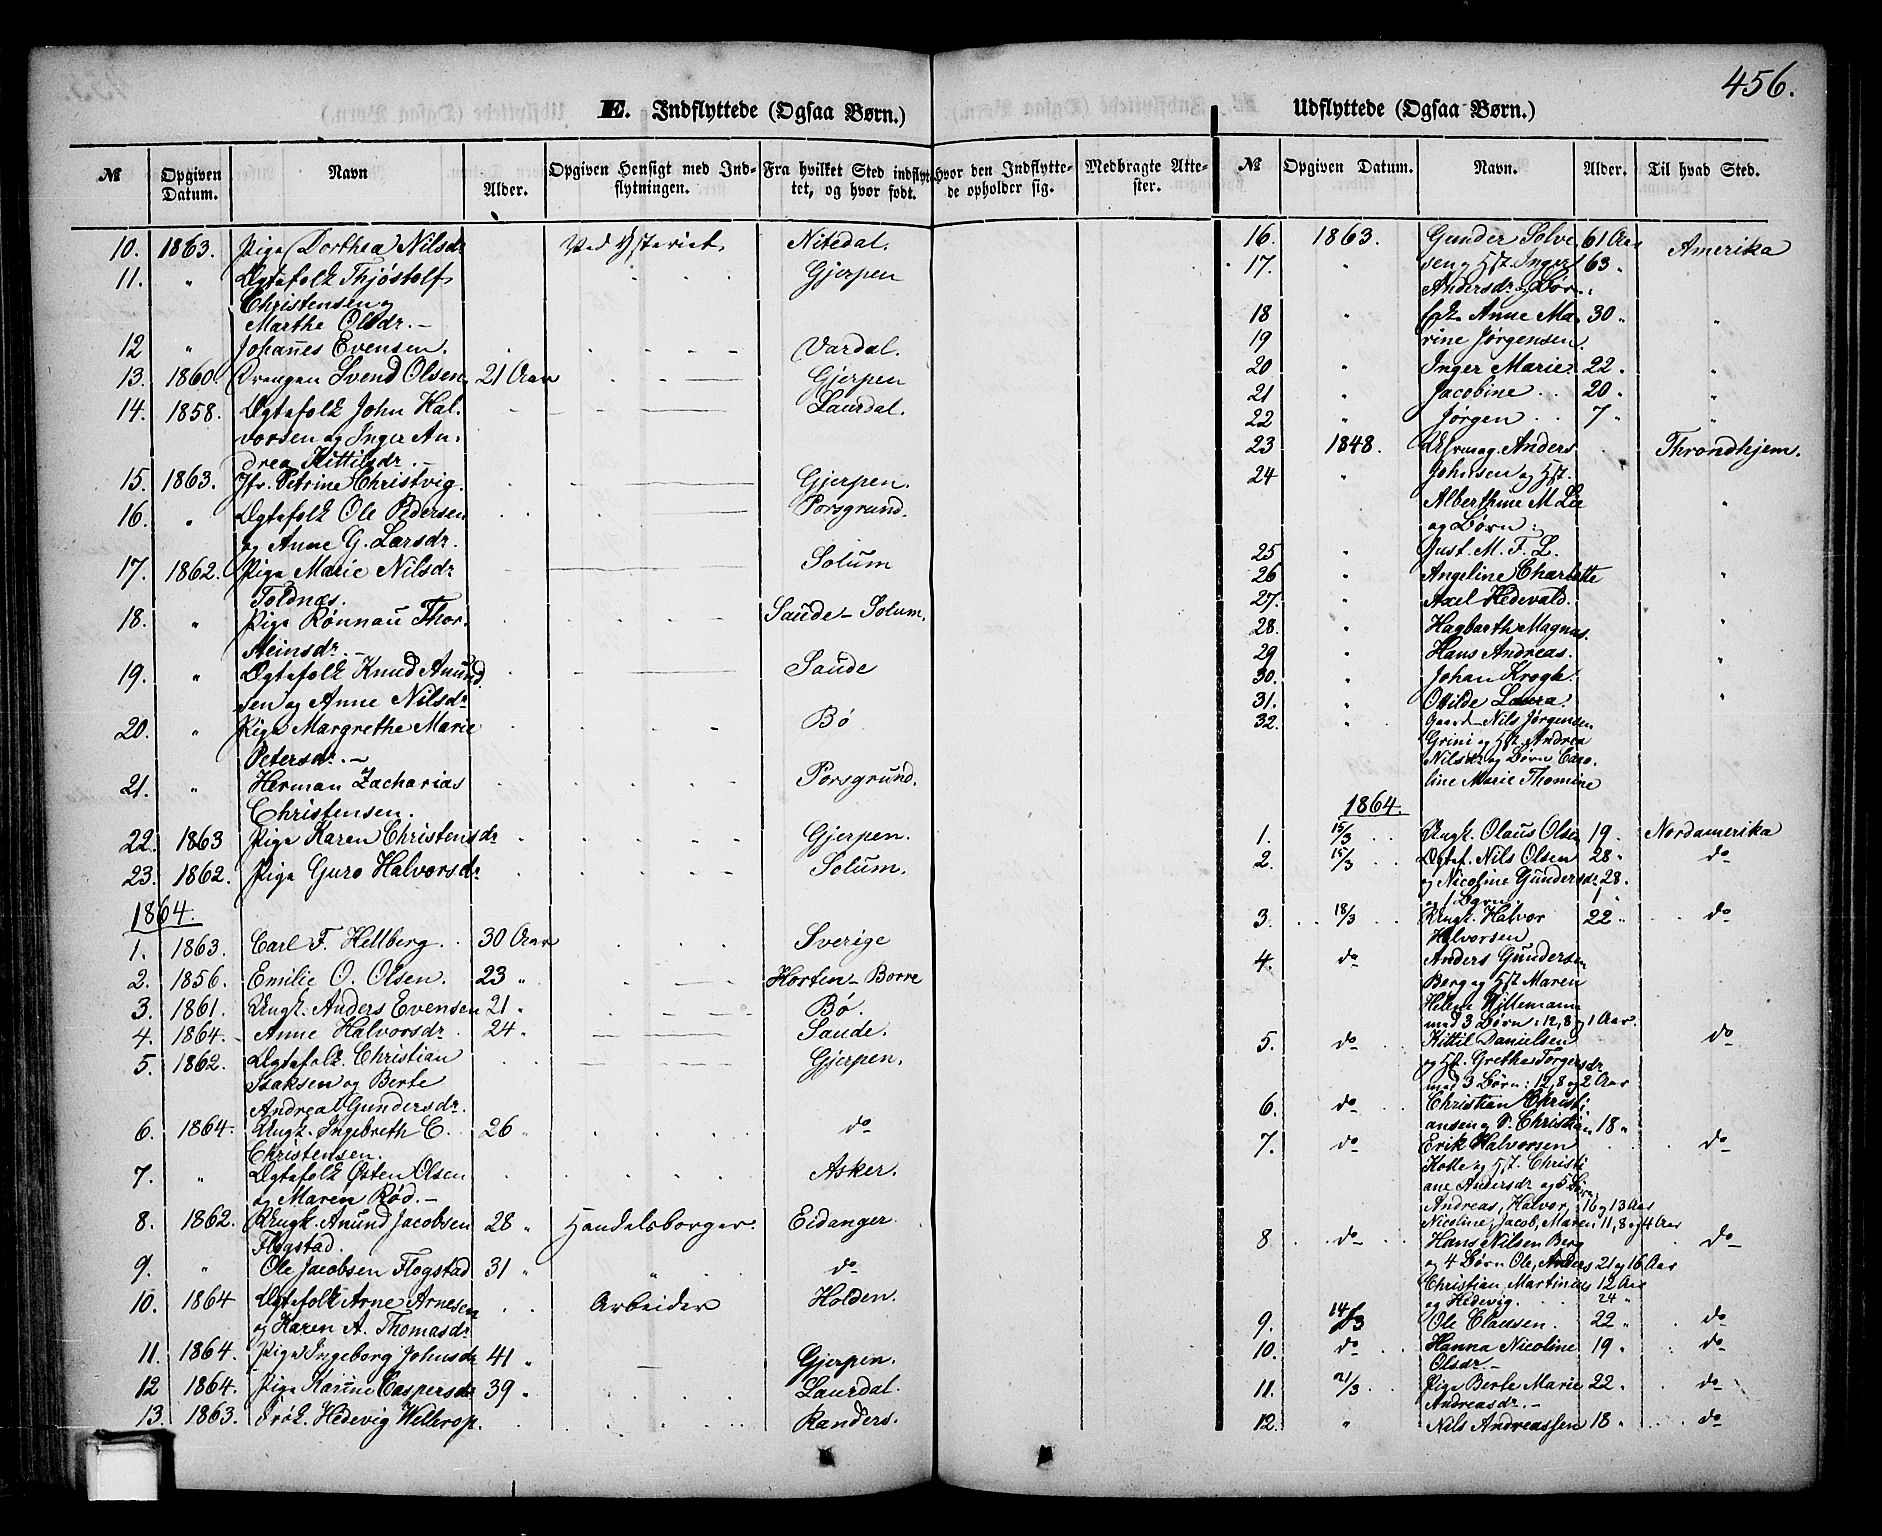 456.
E. Indflyttede (Ogsaa Børn.)
Udflyttede (Ogsaa Børn.)
№ Opgiven Datum. Navn Alder. Opgiven Hensigt med Indflytningen. Fra hvilket Sted indflyttet, og hvor født. Hvor den Indflyttede opholder sig. Medbragte Attester.
10. 1863. Pige Dorthea Nilsdr Nitedal.
11. " Ægtefolk Thjøstolf Gjerpen
Christensen og
Marthe Olsdr. —
12 " Johanes Evensen. Vardal.
13. 1860. Drengen Svend Olsen, 21 Aar Gjerpen
14. 1858. Ægtefolk John Hal- Laurdal.
vorsen og Inger An-
drea Kittilsdr. —
15. 1863. Jfr. Petrine Christvig. Gjerpen.
16. " Ægtefolk Ole Pedersen Porsgrund.
og Anne G. Larsdr.
17. 1862. Pige Marie Nilsdr Solum
Toldnæs.
18. " Pige Rønnau Thor- Saude - Solum.
steinsdr. —
19. " Ægtefolk Knud Anund Saude
sen og Anne Nilsdr
20. " Pige Margrethe Marie Bø
Petersdr. —
21. " Herman Zacharias Porsgrund.
Christensen.
22. 1863 Pige Karen Christensdr Gjerpen.
23. 1862. Pige Guro Halvorsdr Solum.
1864.
1. 1863. Carl F. Hellberg. 30 Aar Sverige
2. 1856. Emilie O. Olsen. 23 " Horten - Borre
3. 1861. Ungk. Anders Evensen 21 " Bø.
4. 1864. Anne Halvorsdr. 24 " Saude.
5. 1862. Ægtefolk. Christian Gjerpen.
Isaksen og Berte
Andrea Gundersdr.
6. 1864. Ungk. Ingebreth C. 26 " do
Christensen.
7. " Ægtefolk Østen Olsen Asker.
og Maren Rød. —
8. 1862. Ungk. Anund Jacobsen 28 " Handelsborger. Eidanger.
Flogstad.
9. " Ole Jacobsen Flogstad 31 " " do
10. 1864 Ægtefolk Arne Arnesen Arbeider Holden.
og Karen A. Thomasdr
11. 1864. Pige Ingeborg Johnsdr 41 " — Gjerpen.
12 1864. Pige Karine Caspersdr 39 " Laurdal.
13. 1863. Frøk. Hedevig Weltrop. Randers.
№ Opgiven Datum. Navn. Alder. Til hvad Sted.
16. 1863. Gunder Solve 61 Aar Amerika
17. " sen og Hst. Inger 63 "
Andersdr og Børn:
18 " Anne Ma- 30 " "
19 " rine Jørgensen.
20 " Inger Marie 22 " "
21 " Jacobine 20 " "
22 " Jørgen 7 " "
23 1848. Anders Throndhjem.
24 " Johnsen og Hst.
Alberthine M Lie "
og Børn:
25 " Just. M. F. L.
26 " Angeline Charlotte "
27. " Axel Hedevald.
28. " Hagbarth Magnus. "
29 " Hans Andreas.
30. " Johan Krogh. "
31. " Otilde Laura. "
32. " Gaard. Nils Jørgensen
Grini og Hst. Andrea
Nilsdr og Børn Caro-
line Marie Thomine
1864.
1. 15/3 Ungk. Olaus Olsen 19. Nordamerika
2. 15/3 Ægtef. Nils Olsen 28 " do
og Nicoline Gundersdr 28.
og 1 Barn 1 "
3. 18/3 Ungk. Halvor 22 " do
Halvorsen
4. do Anders Gundersen
Berg og Hst Maren
Helene Willemann
med 3 Børn: 12, 8 og 1 Aar.
5. do Kittil Danielsen do
og Hst. Grethe Torgersdr
med 3 Børn: 12, 8 og 2 Aar
6. do Christian Christi
ansen og S. Christian 18 "
7. do Erik Halvorsen do
Kotte og Hst. Christi
ane Andersdr og 5 Børn
Andreas, Halvor, 16 og 13 Aar
Nicoline, Jacob, Maren 11, 8 og 4 Aar
8 do Hans Nilsen Berg do
og 4 Børn Ole, Anders 21 og 16 Aar
Christian Martinus 12 Aar
og Hedevig. 24 "
9. 14/3 Ole Clausen. 22 " do
10. do Hanna Nicoline 19 " do
Olsdr. —
11. 21/3 Pige Berte Marie 22 " do
Andreasdr. —
12. " Nils Andreassen 18 " do